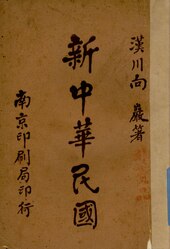 漢川向巖著
新中華民國
南京印刷局印行